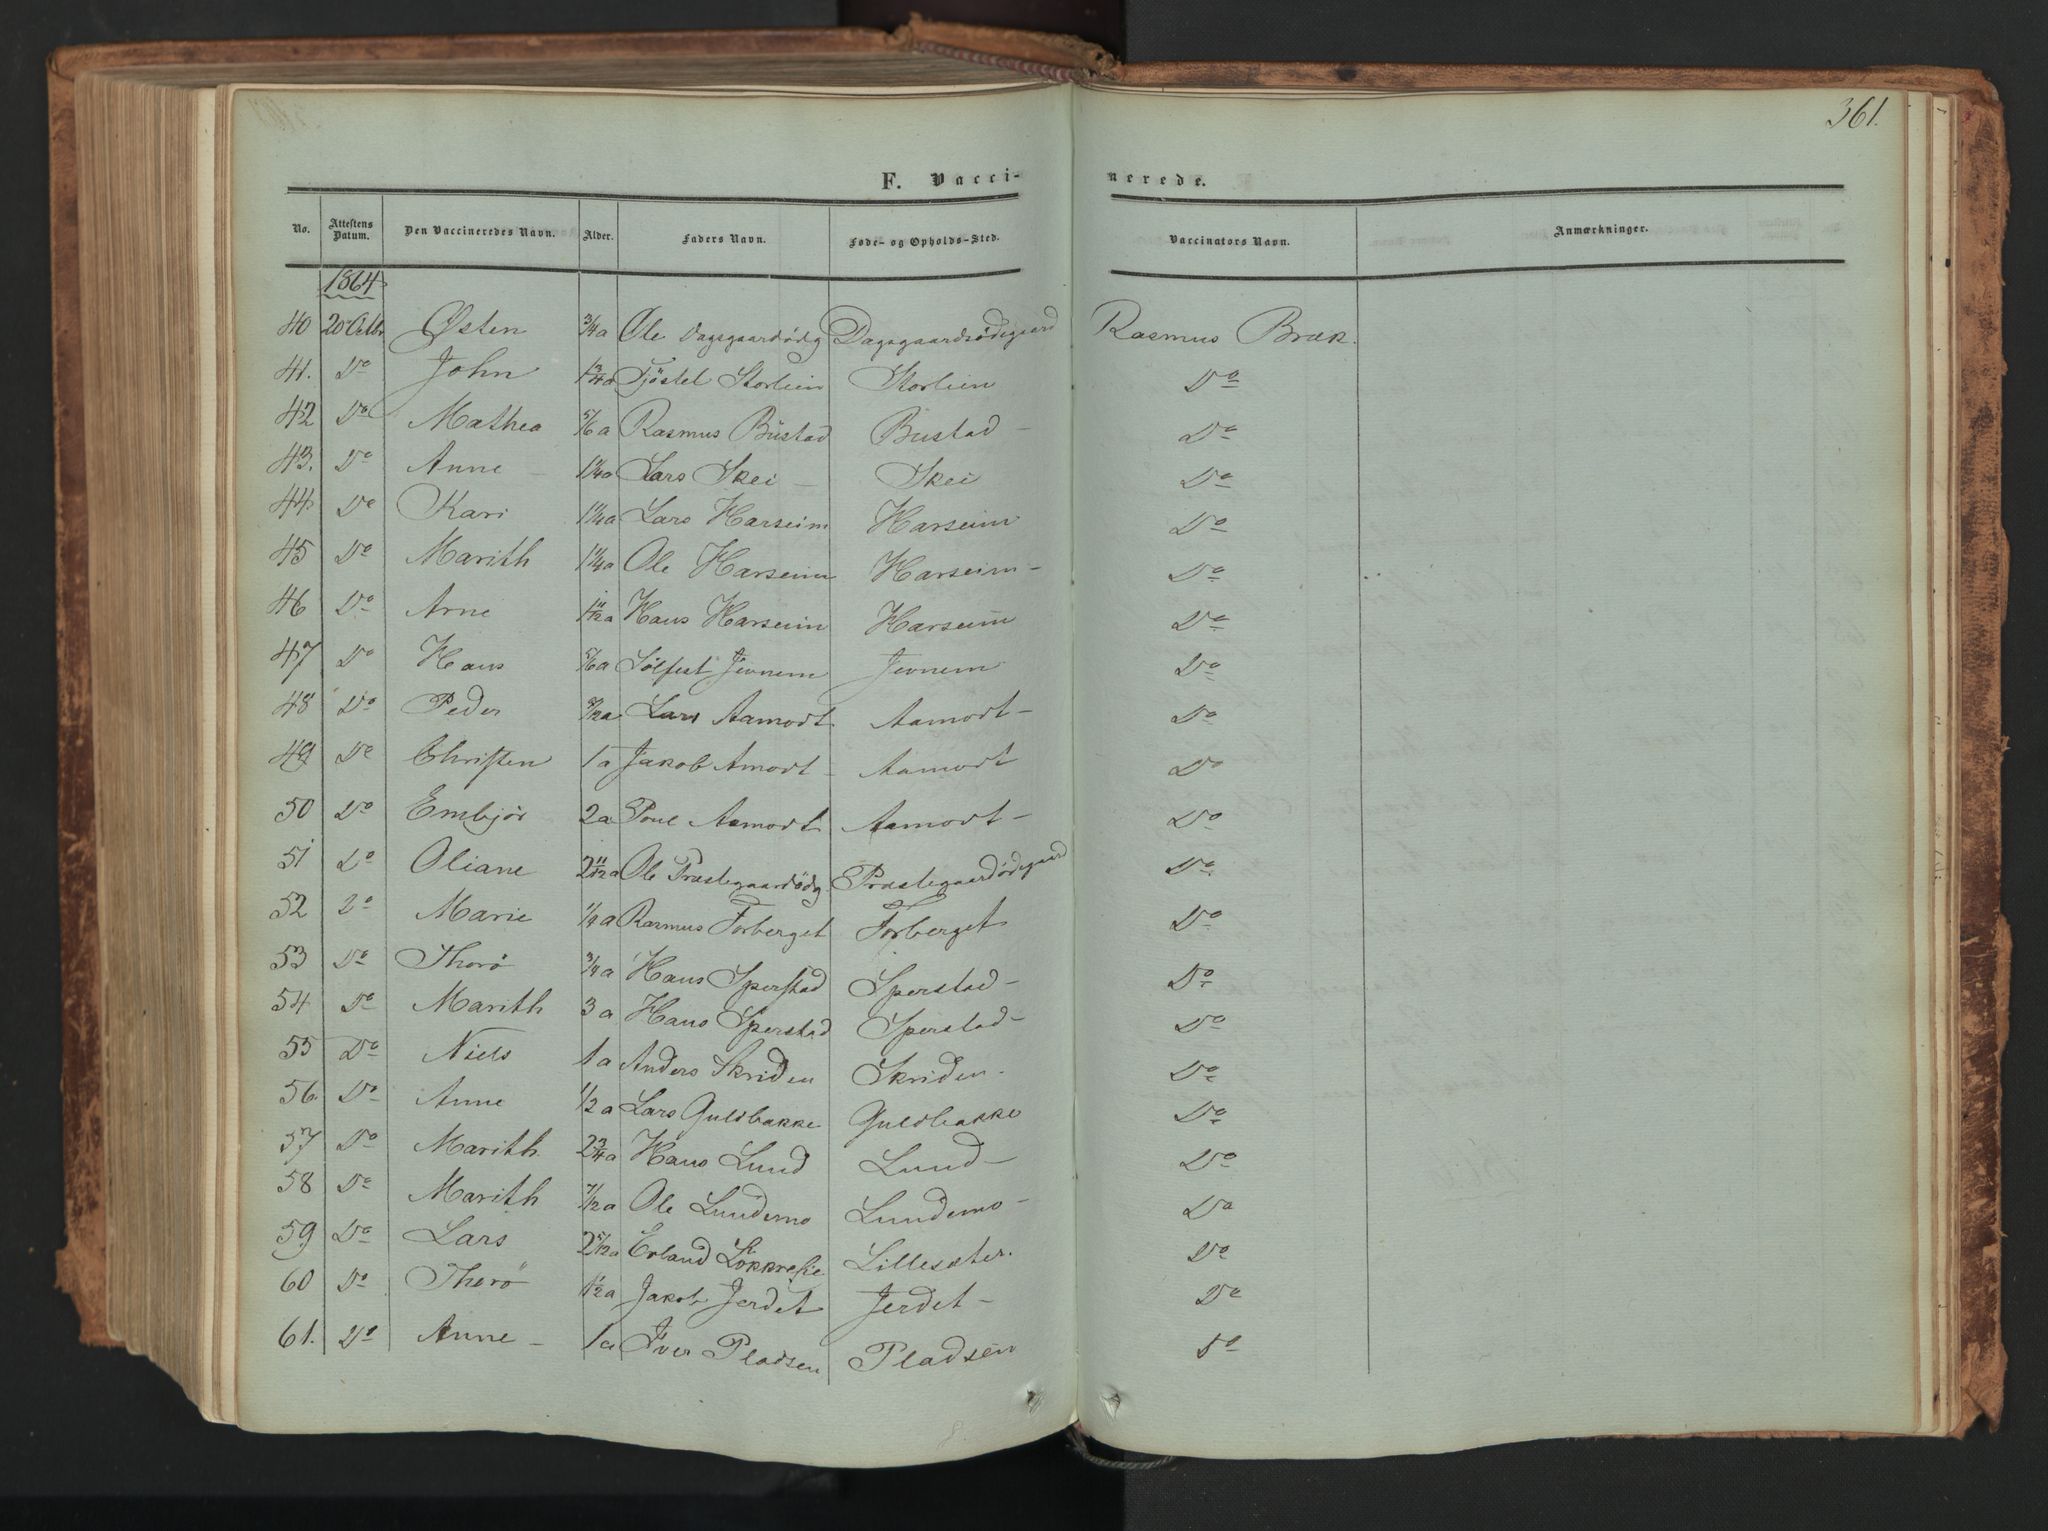 361.
F. Vaccinerede.
No. Attestens Datum. Den Vaccineredes Navn. Alder. Faders Navn. Føde- og Opholds-Sted. Vaccinators Navn. Anmærkninger.
1864
40 20 Octbr Østen 3/4 a Ole Dagsgaardødg Dagsgaardsødegaard Rasmus Bræk.
41. Do John 1 3/4 a Tjöstel Storlien Storlien Do
42 Do Mathea 5/6 a Rasmus Bustad Bustad – Do
43. Do Anne – 1 1/4 a Lars Skei – Skei Do
44 Do Kari 1 1/4 a Lars Harseim Harseim Do
45 Do Marith 1 1/4 a Ole Harseim Harseim – Do
46 Do Arne 1 11/12 a Hans Harseim Harseim Do
47 Do Hans 5/6 a Sölfest Jevnem Jevnem Do
48 Do Peder /12 a Lars Aamodt Aamodt – Do
49 Do Christen 1 a Jakob Amodt – Aamodt Do
50 Do Embjør 2 a Poul Aamodt Aamodt – Do
51 Do Oliane 2 11/12 a Ole Præstegaardødg. Præstegaardødegaard Do
52 Do Marie 1/4 a Rasmus Forberget Forberget Do
53 Do Thorö 3/4 a Hans Sperstad Sperstad – Do
54 Do Marith 3 a Hans Sperstad Sperstad – Do
55 Do Niels 1 a Anders Skriden Skriden – Do
56. Do Anne 1/2 a Lars Guldbakke Guldbakke Do
57 Do Marith 2 3/4 a Hans Lund Lund – Do
58 Do Marith 7/12 a Ole Lundemo Lundemo – Do
59 Do Lars 2 5/12 a Erland Lillesæter. Do
60 Do Thorö 1 1/2 a Jakob Jerdet Jerdet – Do
61. Do Anne – 1 a Iver Pladsen Pladsen Do